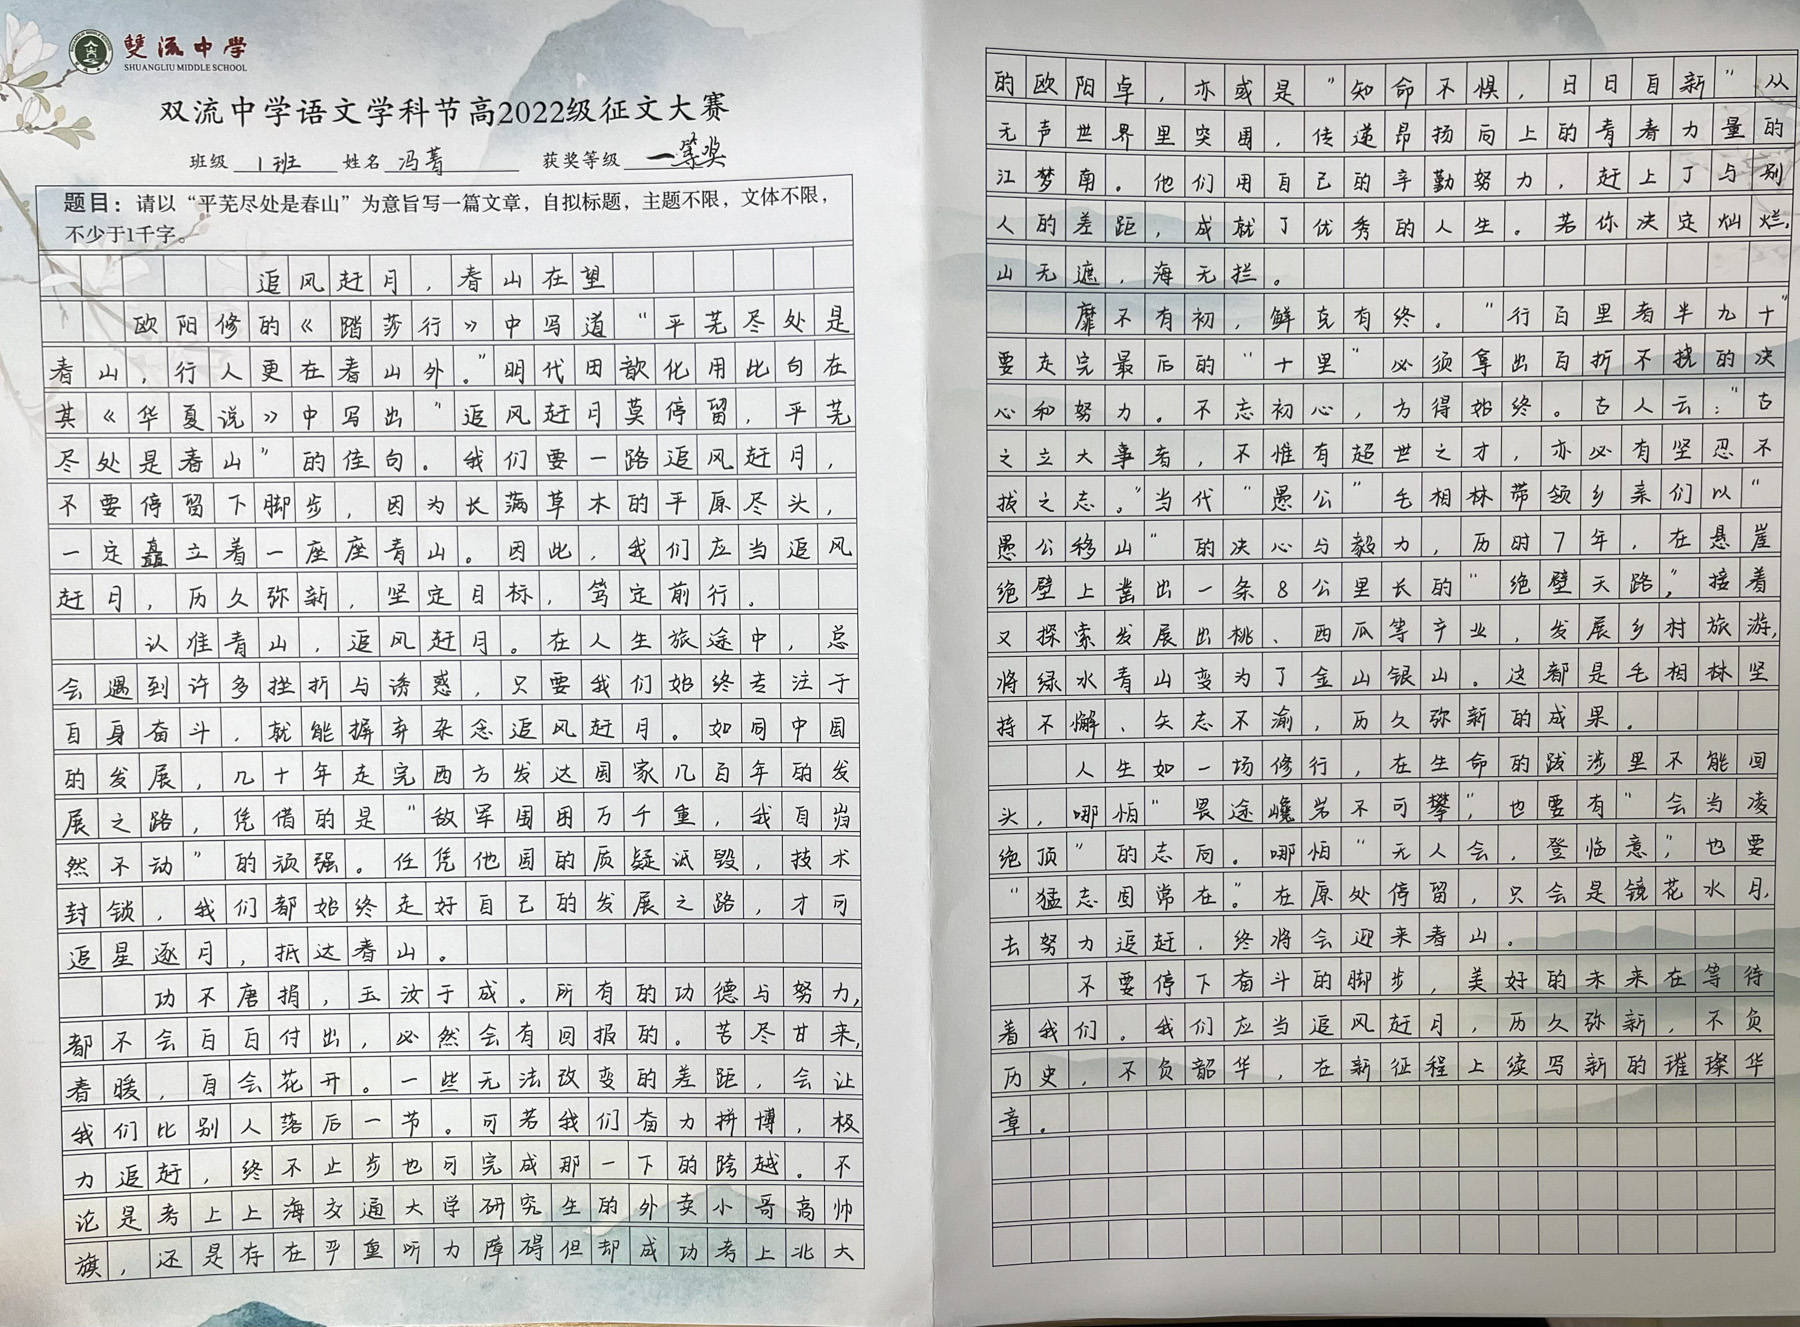 雙流中學
SHUANGLIU MIDDLE SCHOOL
双流中学语文学科节高2022级征文大赛
班级 1班 姓名 冯菁 获奖等级 一等奖
题目：请以“平芜尽处是春山”为意旨写一篇文章，自拟标题，主题不限，文体不限，
不少于1千字。
追风赶月，春山在望
欧阳修的《踏莎行》中写道“平芜尽处是
春山，行人更在春山外。”明代田歆化用此句在
其《华夏说》中写出“追风赶月莫停留，平芜
尽处是春山”的佳句。我们要一路追风赶月，
不要停留下脚步，因为长满草木的平原尽头，
一定矗立着一座座青山。因此，我们应当追风
赶月，历久弥新，坚定目标，笃定前行。
认准青山，追风赶月。在人生旅途中，总
会遇到许多挫折与诱惑，只要我们始终专注于
自身奋斗，就能摒弃杂念追风赶月。如同中国
的发展，几十年走完西方发达国家几百年的发
展之路，凭借的是“敌军围困万千重，我自岿
然不动”的顽强。任凭他国的质疑诋毁，技术
封锁，我们都始终走好自己的发展之路，才可
追星逐月，抵达春山。
功不唐捐，玉汝于成。所有的功德与努力，
都不会白白付出，必然会有回报的。苦尽甘来，
春暖，自会花开。一些无法改变的差距，会让
我们比别人落后一节。可若我们奋力拼博，极
力追赶，终不止步也可完成那一下的跨越。不
论是考上上海交通大学研究生的外卖小哥高帅
旗，还是存在严重听力障碍但却成功考上北大
的欧阳卓，亦或是“知命不惧，日日自新”从
无声世界里突围，传递昂扬向上的青春力量的
江梦南。他们用自己的辛勤努力，赶上了与别
人的差距，成就了优秀的人生。若你决定灿烂，
山无遮，海无拦。
靡不有初，鲜克有终。“行百里者半九十”
要走完最后的“十里”必须拿出百折不挠的决
心和努力。不忘初心，方得始终。古人云：“古
之立大事者，不惟有超世之才，亦必有坚忍不
拔之志。”当代“愚公”毛相林带领乡亲们以“
愚公移山”的决心与毅力，历时7年，在悬崖
绝壁上凿出一条8公里长的“绝壁天路”，接着
又探索发展出桃、西瓜等产业，发展乡村旅游，
将绿水青山变为了金山银山。这都是毛相林坚
持不懈、矢志不渝，历久弥新的成果。
人生如一场修行，在生命的跋涉里不能回
头，哪怕“畏途巉岩不可攀”，也要有“会当凌
绝顶”的志向。哪怕“无人会，登临意”；也要
“猛志固常在”。在原处停留，只会是镜花水月，
去努力追赶，终将会迎来春山。
不要停下奋斗的脚步，美好的未来在等待
着我们。我们应当追风赶月，历久弥新，不负
历史，不负韶华，在新征程上续写新的璀璨华
章。